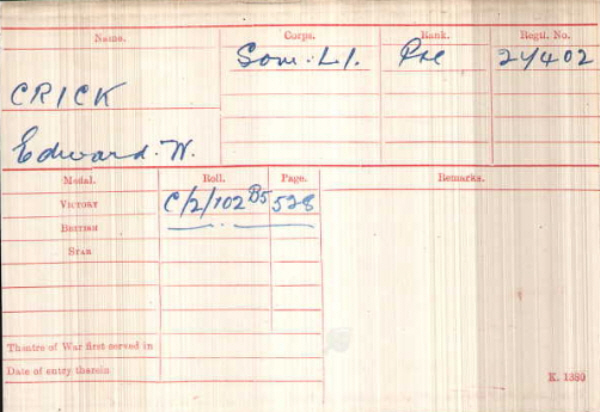 Name. Corps. Rank. Regtl. No.
Som. L.I. Pte 27402
CRICK
Edward. W.
Medal. Roll. Page. Remarks.
VICTORY C/2/102 B5 528
BRITISH
STAR
Theatre of War first served in
Date of entry therein
K. 1380